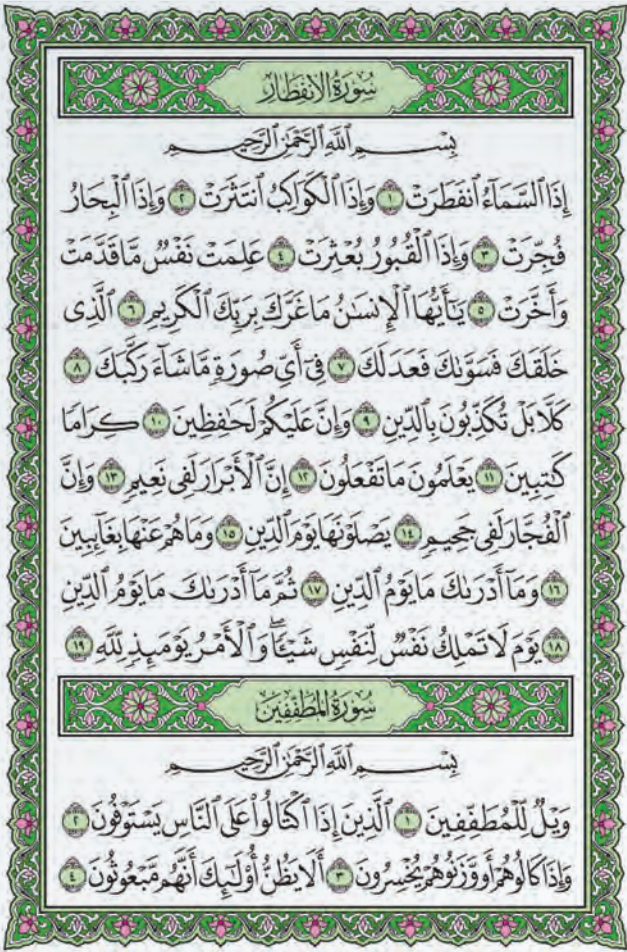 سُورَةُ الانفِطَارِ
بِسْمِ اللَّهِ الرَّحْمَٰنِ الرَّحِيمِ
إِذَا السَّمَآءُ ٱنفَطَرَتْ ١ وَإِذَا ٱلْكَوَاكِبُ ٱنتَثَرَتْ ٢ وَإِذَا ٱلْبِحَارُ
فُجِّرَتْ ٣ وَإِذَا ٱلْقُبُورُ بُعْثِرَتْ ٤ عَلِمَتْ نَفْسٌ مَّا قَدَّمَتْ
وَأَخَّرَتْ ٥ يَٰٓأَيُّهَا ٱلْإِنسَٰنُ مَا غَرَّكَ بِرَبِّكَ ٱلْكَرِيمِ ٦ ٱلَّذِى
خَلَقَكَ فَسَوَّىٰكَ فَعَدَلَكَ ٧ فِىٓ أَىِّ صُورَةٍ مَّا شَآءَ رَكَّبَكَ ٨
كَلَّا بَلْ تُكَذِّبُونَ بِٱلدِّينِ ٩ وَإِنَّ عَلَيْكُمْ لَحَٰفِظِينَ ١٠ كِرَامًا
كَٰتِبِينَ ١١ يَعْلَمُونَ مَا تَفْعَلُونَ ١٢ إِنَّ ٱلْأَبْرَارَ لَفِى نَعِيمٍ ١٣ وَإِنَّ
ٱلْفُجَّارَ لَفِى جَحِيمٍ ١٤ يَصْلَوْنَهَا يَوْمَ ٱلدِّينِ ١٥ وَمَا هُمْ عَنْهَا بِغَآئِبِينَ
١٦ وَمَآ أَدْرَىٰكَ مَا يَوْمُ ٱلدِّينِ ١٧ ثُمَّ مَآ أَدْرَىٰكَ مَا يَوْمُ ٱلدِّينِ
١٨ يَوْمَ لَا تَمْلِكُ نَفْسٌ لِّنَفْسٍ شَيْـًٔا ۖ وَٱلْأَمْرُ يَوْمَئِذٍ لِّلَّهِ ١٩
سُورَةُ المُطَفِّفِينَ
بِسْمِ اللَّهِ الرَّحْمَٰنِ الرَّحِيمِ
وَيْلٌ لِّلْمُطَفِّفِينَ ١ ٱلَّذِينَ إِذَا ٱكْتَالُوا۟ عَلَى ٱلنَّاسِ يَسْتَوْفُونَ ٢
وَإِذَا كَالُوهُمْ أَو وَّزَنُوهُمْ يُخْسِرُونَ ٣ أَلَا يَظُنُّ أُو۟لَٰٓئِكَ أَنَّهُم مَّبْعُوثُونَ ٤